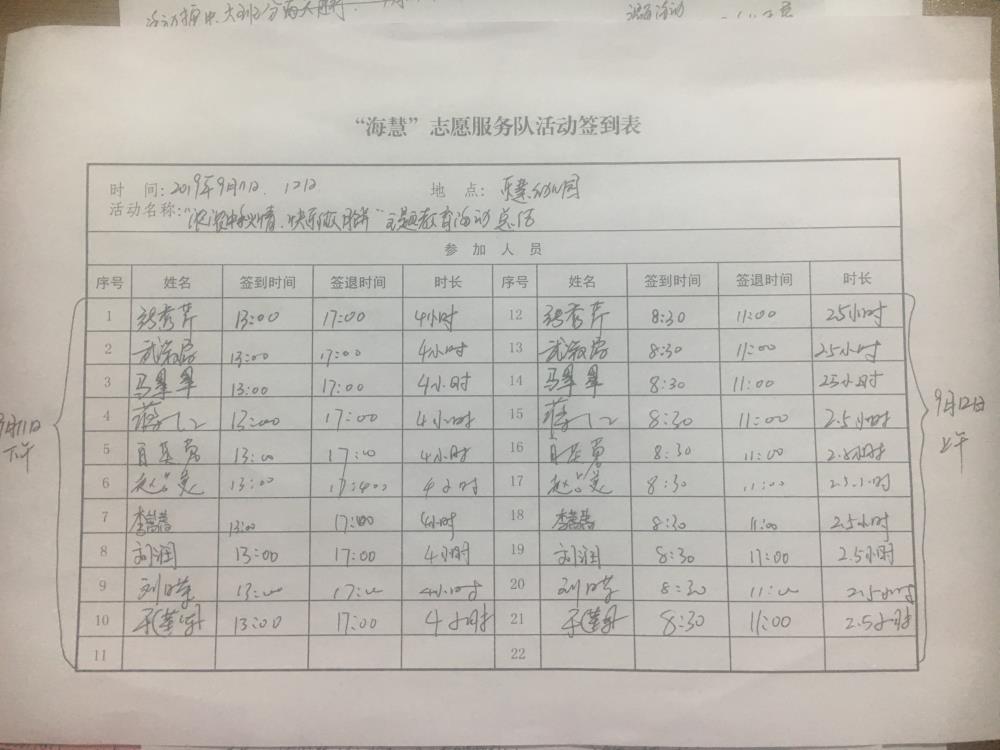 活动
活动
“海慧”志愿服务队活动签到表
时 间:2019年9月11日. 12日 地 点: 幼儿园
活动名称:“浓浓中秋情.快乐做月饼”主题教育活动总结
参 加 人 员
序号 姓名 签到时间 签退时间 时长 序号 姓名 签到时间 签退时间 时长
1 张秀芹 13:00 17:00 4小时 12 张秀芹 8:30 11:00 2.5小时
2 13:00 17:00 4小时 13 8:30 11:00 2.5小时
3 马翠翠 13:00 17:00 4小时 14 马翠翠 8:30 11:00 2.5小时
4 蒋 13:00 17:00 4小时 15 蒋 8:30 11:00 2.5小时
5 13:00 17:00 4小时 16 8:30 11:00 2.5小时
6 赵 13:00 17:00 4小时 17 赵 8:30 11:00 2.5小时
7 李 13:00 17:00 4小时 18 李 8:30 11:00 2.5小时
8 刘润 13:00 17:00 4小时 19 刘润 8:30 11:00 2.5小时
9 刘 13:00 17:00 4小时 20 刘 8:30 11:00 2.5小时
10 13:00 17:00 4小时 21 8:30 11:00 2.5小时
11 22
9月11日
下午
9月12日
上午